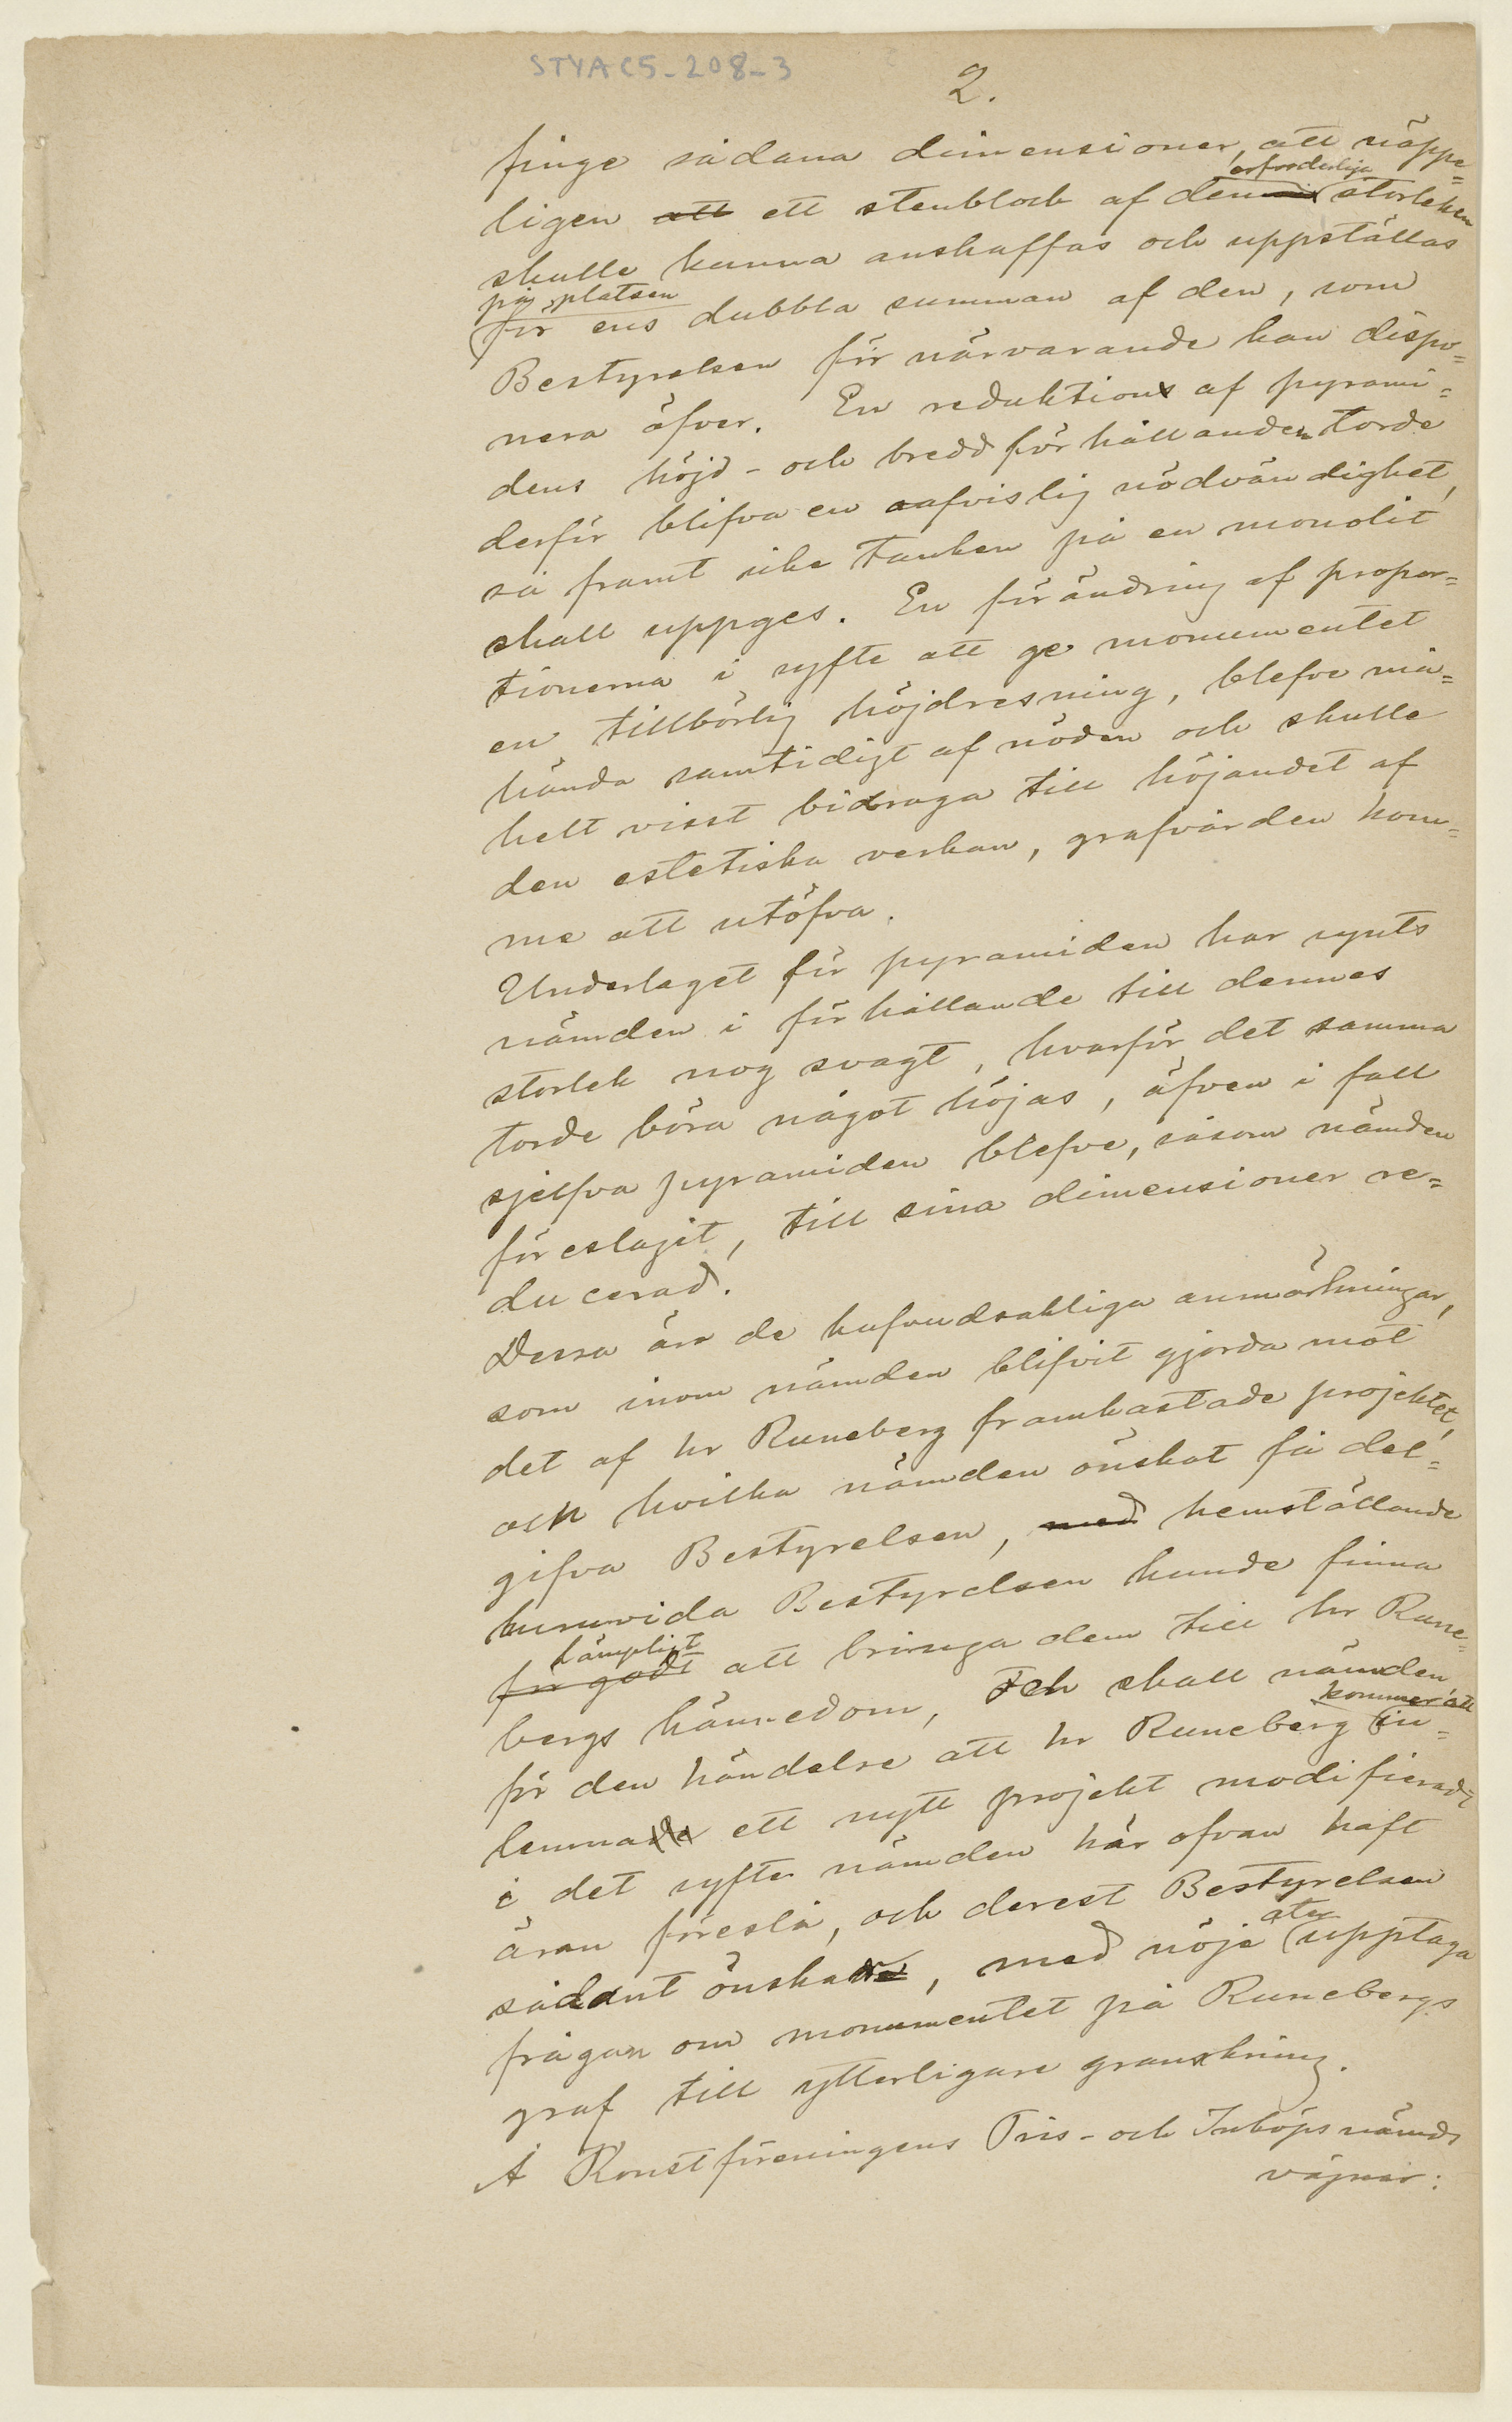 STYA C5_208_3
2.
finge sådana dimensioner, att näppe=
erforderliga
ligen att ett stenblock af den storleken
skulle kunna anskaffas och uppställas
på platsen
för ens dubbla summan af den, som
Bestyrelsen för närvarande kan dispo=
nera öfver. En reduktion af pyrami=
dens höjd- och breddförhållanden torde
derför blifva en oafvislig nödvändighet,
så framt icke tanken på en monolit
skall uppges. En förändring af propor=
tionerna i syfte att ge monumentet
en tillbörlig höjdresning, blefve må=
hända samtidigt af nöden och skulle
helt visst bidraga till höjandet af
den estetiska verkan, grafvården kom=
me att utöfva.
Underlaget för pyramiden har synts
nämden i förhållande till dennes
storlek nog svagt, hvarför det samma
torde böra något höjas, äfven i fall
sjelfva pyramiden blefve, såsom nämden
föreslagit, till sina dimensioner re=
ducerad.
Dessa äro de hufvudsakliga anmärkningar,
som inom nämden blifvit gjorda mot
det af hr Runeberg framkastade projektet,
och hvilka nämden önskat få del=
gifva Bestyrelsen, med hemställande
huruvida Bestyrelsen kunde finna
lämpligt
för godt att bringa dem till hr Rune=
bergs kännedom, Och skall nämden
kommer att
för den händelse att hr Runeberg in=
lemna ett nytt projekt modifieradt
i det syfte nämden här ofvan haft
äran föreslå, och derest Bestyrelsen
åter
sådant önskar, med nöje upptaga
frågan om monumentet på Runebergs
graf till ytterligare granskning.
Å Konstföreningens Pris- och Inköpsnämds
vägnar: